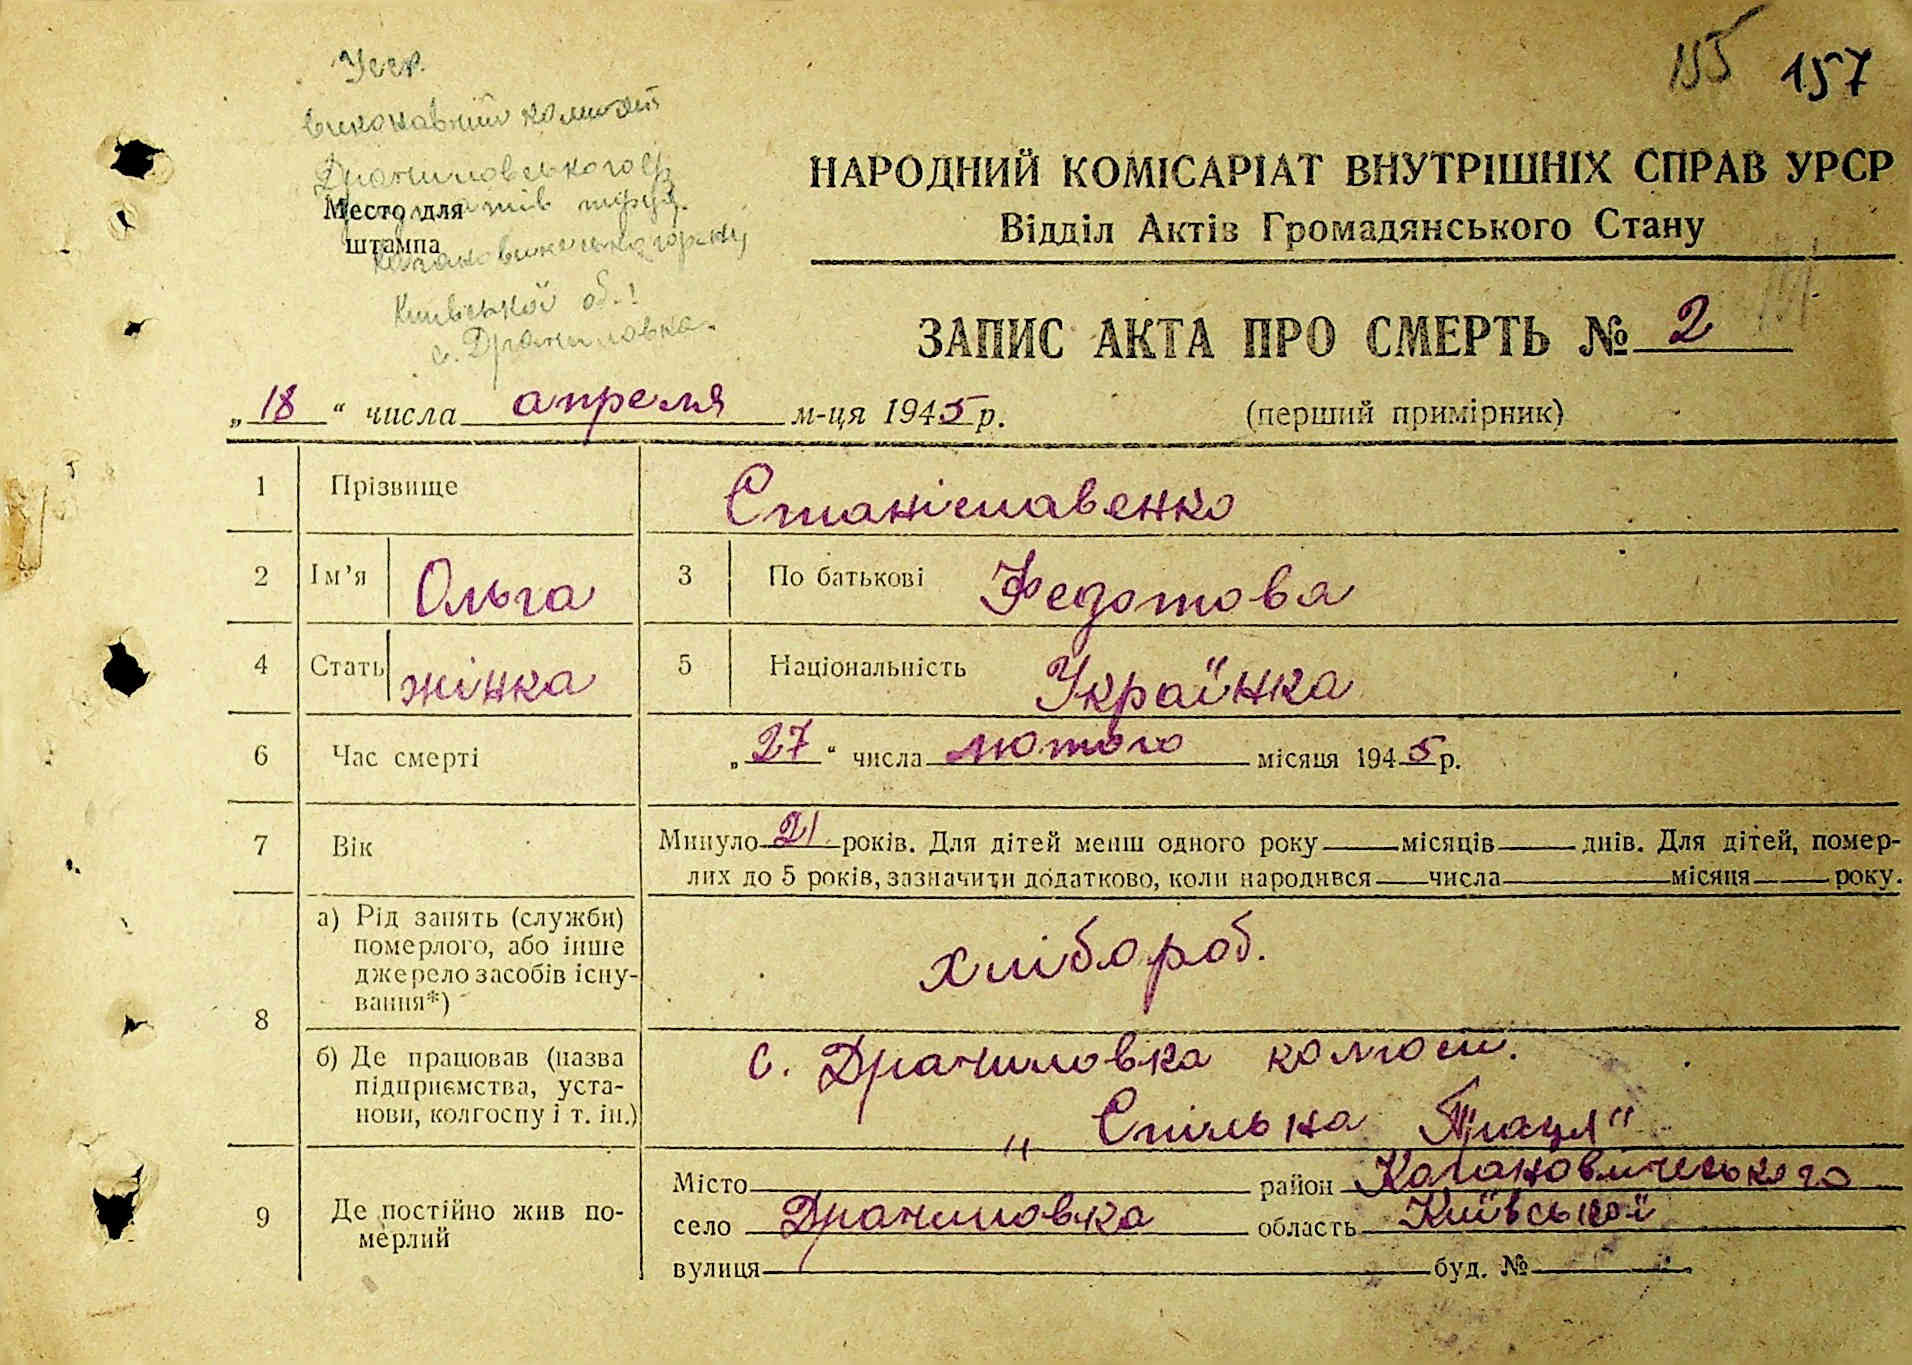 155 157
Уссr
виконавчий комітет
Драчиловського с/р
Место для
депутатів труд.
штампа
Кагановичського р-ну
Київської обл
с. Драчиловка.
НАРОДНИЙ КОМІСАРІАТ ВНУТРІШНІХ СПРАВ УРСР
Відділ Актів Громадянського Стану
ЗАПИС АКТА ПРО СМЕРТЬ № 2
„18“ числа апреля м-ця 1945 р. (перший примірник)
1 Прізвище Станіславенко
2 Ім'я Ольга 3 По батькові Федотова
4 Стать жінка 5 Національність Українка
6 Час смерті „27“ числа лютого місяця 1945 р.
7 Вік Минуло 21 років. Для дітей менш одного року місяців днів. Для дітей, помер-
лих до 5 років, зазначити додатково, коли народився числа місяця року.
8 а) Рід занять (служби) померлого, або інше джерело засобів існу-вання*) хлібороб.
б) Де працював (назва підприємства, уста-нови, колгоспу і т. ін.) с. Драчиловка колгосп.
„Спільна Праця“
9 Де постійно жив по-мерлий Місто район Кагановичського
село Драчиловка область Київської
вулиця буд. №